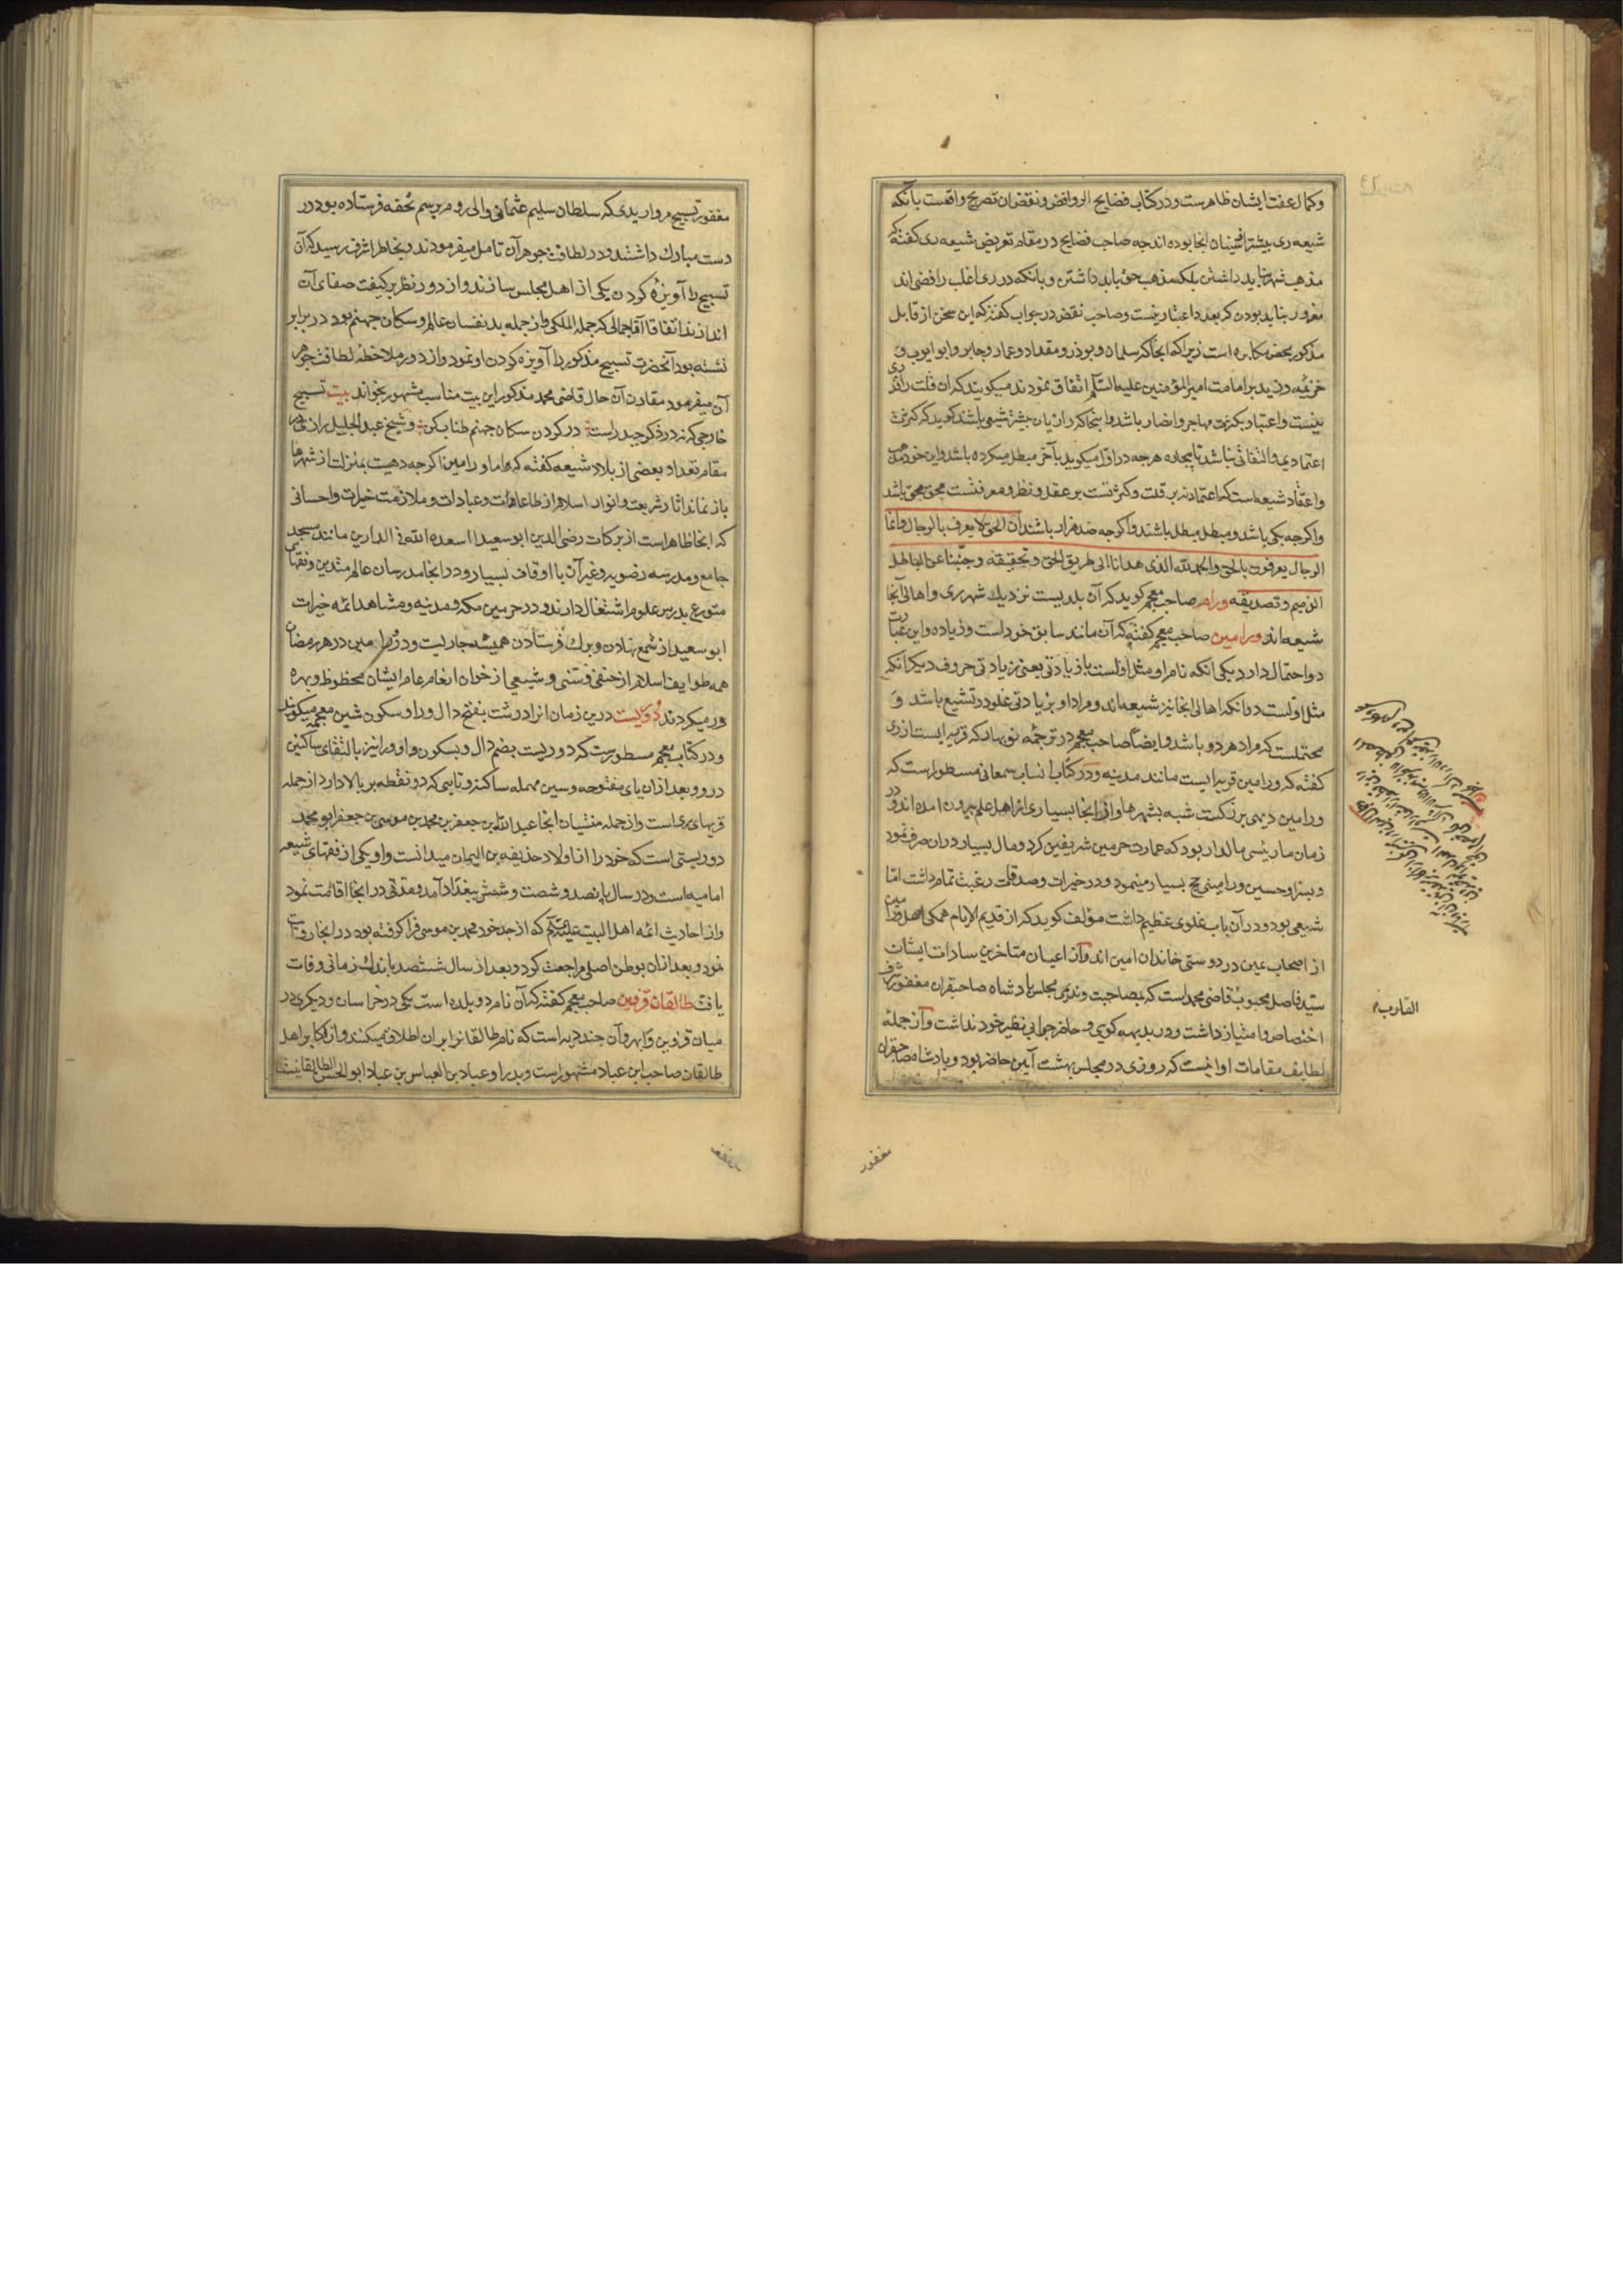 وکمال عفت ایشان ظاهرست ودر کتاب فضایح الروافض ونقض ان تصریح واقعست بآنکه
شیعه ری بیشتر از سنیان انجا بوده اند چه صاحب فضایح در مقام تعریض شیعه ری کفته که
مذهب شهر نباید داشتن بلکه مذهب حق باید داشتن وبانکه در ری اغلب رافضی اند
مغرور نباید بودن که بعدد اعتبار نیست وصاحب نقض در جواب کفته که این سخن از قایل
مذکور محض مکابره است زیرا که انجا که سلمان وبوذر ومقداد وعمار وجابر وابو ایوب و
خزیمه وزید بر امامت امیر المؤمنین علیه السلم اتفاق نمودند میکویند که ان قلت را قدری
نیست واعتبار بکثرت مهاجر وانصار باشد واینجا که رازیان بیشتر شیعی باشند کوید که کثرت
اعتمادی والتفاتی نباشد تا بیچاره هرچه در اول میکوید بآخر مبطل میکرده باشد واین خود مذهب
واعتقاد شیعه است که اعتماد نه بر قلت وکثرتست بر عقد ونظر ومعرفتست محق محق باشد
واکرچه یکی باشد ومبطل مبطل باشند واکرچه صد هزار باشند ان الحق لا یعرف بالرجال وانما
الرجال یعرفون بالحق والحمد لله الذی هدانا الی طریق الحق وتحقیقه وجنبنا عن الباطل
الذمیم وتصدیقه ورام صاحب معجم کوید که آن بلدیست نزدیك شهر ری واهالی آنجا
شیعه اند ورامین صاحب معجم کفته که آن مانند سابق خود است وزیاده واین عبارت
دو احتمال دارد یکی انکه نام او مثل اولست با زیادتی یعنی زیادتی حروف دیکر انکه
مثل اولست در انکه اهالی انجا نیز شیعه اند ومراد او بزیادتی غلو در تشیع باشد و
محتملست که مراد هر دو باشد وایضا صاحب معجم در ترجمه نوبهار که قریه ایست از ری
کفته که ورامین قریه ایست مانند مدینه ودر کتاب انساب سمعانی مسطور است که
ورامین دیهی بزرکست شبه بشهرها واز انجا بسیاری از اهل علم بیرون امده اند ودر
زمان ما رئیسی مالدار بود که عمارت حرمین شریفین کرد ومال بسیار دران صرف نمود
وپسر او حسین ورامینی حج بسیار مینمود ودر خیرات وصدقات رغبت تمام داشت اما
شیعی بود ودر آن باب غلوی عظیم داشت مؤلف کوید که از قدیم الایام همکی اهل ورامین
از اصحاب عین در دوستی خاندان امین اند واز اعیان متاخرین سادات ایشان
سید فاضل محبوب قاضی محمد است که بمصاحبت وندیمی مجلس پادشاه صاحبقران مغفور شرف
اختصاص وامتیاز داشت ودر بدیهه کویی وحاضر جوابی نظیر خود نداشت واز جمله
لطایف مقامات او انیست که روزی در مجلس بهشت آیین حاضر بود وپادشاه صاحبقران
مغفور
مغفور تسبیح مرواریدی که سلطان سلیم عثمانی والی روم برسم تحفه فرستاده بود در
دست مبارك داشتند ودر لطافت جوهر آن تامل میفرمودند وبخاطر اشرف رسید که آن
تسبیح را آویزه کردن یکی از اهل مجلس سازند واز دور نظر بر کیفیت صفای آن
اندازند اتفاقا آقا جمالی که جمله الملکی واز جمله بد نفسان عالم وسکان جهنم بود در برابر
نشسته بود آنحضرت تسبیح مذکور را آویزه کردن او نمود واز دور ملاحظه لطافت جوهر
آن میفرمود مقارن آن حال قاضی محمد مذکور این بیت مناسب مشهور بخواند بیت تسبیح
خارجی که نه در ذکر حیدر است در کردن سکان جهنم طناب کن وشیخ عبد الجلیل رازی در
مقام تعداد بعضی از بلاد شیعه کفته که واما ورامین اکرچه دهیست بمنزلت از شهرها
باز نماند اثار شریعت وانوار اسلام از طاعات وعبادات وملازمت خیرات واحسانی
که انجا ظاهر است از برکات رضی الدین ابو سعید اسعده الله فی الدارین مانند مسجد
جامع ومدرسه رضویه وغیر آن با اوقاف بسیار ودر انجا مدرسان عالم متدین وفقهای
متورع بدرس علوم اشتغال دارند ودر حرمین مکه ومدینه ومشاهد ائمه خیرات
ابو سعید از شمع نهادن وبرك فرستادن همیشه جاریست ودر ورامین در هر رمضان
همه طوایف اسلام از حنفی وسنی وشیعی از خوان انعام عام ایشان محظوظ وبهره
ور میکردند دوریست درین زمان انرا درشت بفتح دال ورا وسکون شین معجمه میکویند
ودر کتاب معجم مسطورست که دوریست بضم دال وبسکون واو ورا نیز بالتقای ساکنین
در وو بعد ازان یای مفتوحه وسین مهمله ساکنه وتایی که دو نقطه بر بالا دارد از جمله
قریهای ری است واز جمله منتسبان انجا عبد الله بن جعفر بن محمد بن موسی بن جعفر ابو محمد
دوریستی است که خود را از اولاد حذیفه بن الیمان میدانست واو یکی از فقهای شیعه
امامیه است ودر سال پانصد وشصت وشش ببغداد آمد ومدتی در انجا اقامت نمود
واز احادیث ائمه اهل البیت علیهم السلم که از جد خود محمد بن موسی فرا کرفته بود در انجا روایت
نمود وبعد ازان بوطن اصلی مراجعت کرد وبعد از سال ششصد باندك زمانی وفات
یافت طالقان قزوین صاحب معجم کفته که آن نام دو بلده است یکی در خراسان ودیکری در
میان قزوین وابهر وآن چند دیه است که نام طالقان را بران اطلاق میکنند واز اکابر اهل
طالقان صاحب ابن عباد مشهور است وپدر او عباد بن العباس بن عباد ابو الحسن الطالقانیست